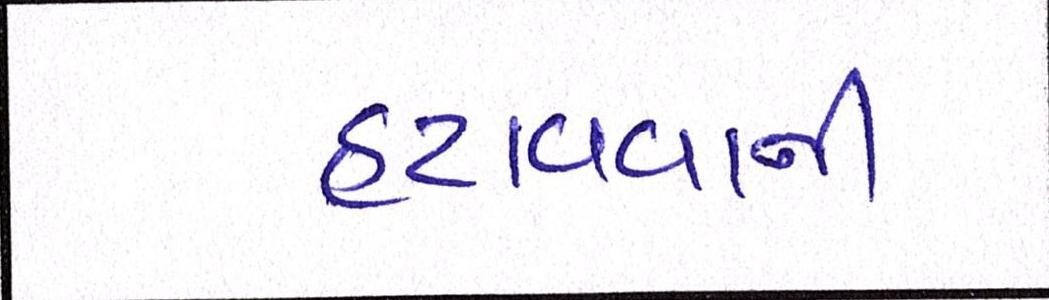 હટાવવાની